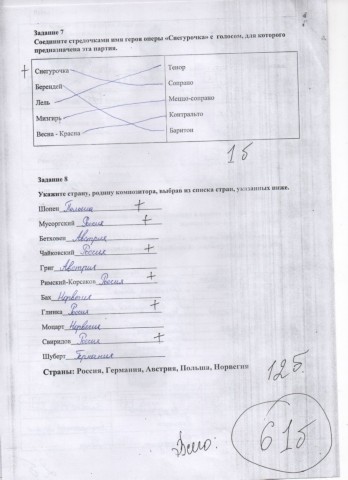 Задание 7
Соедините стрелочками имя героя оперы «Снегурочка» с голосом, для которого
предназначена эта партия.
+ Снегурочка Тенор
Берендей Сопрано
Лель Меццо-сопрано
Мизгирь Контральто
Весна - Красна Баритон
1б
Задание 8
Укажите страну, родину композитора, выбрав из списка стран, указанных ниже.
Шопен Польша +
Мусоргский Россия +
Бетховен Австрия
Чайковский Россия +
Григ Австрия
Римский-Корсаков Россия +
Бах Норвегия
Глинка Россия +
Моцарт Норвегия
Свиридов Россия +
Шуберт Германия
Страны: Россия, Германия, Австрия, Польша, Норвегия
12б
Всего: 61б